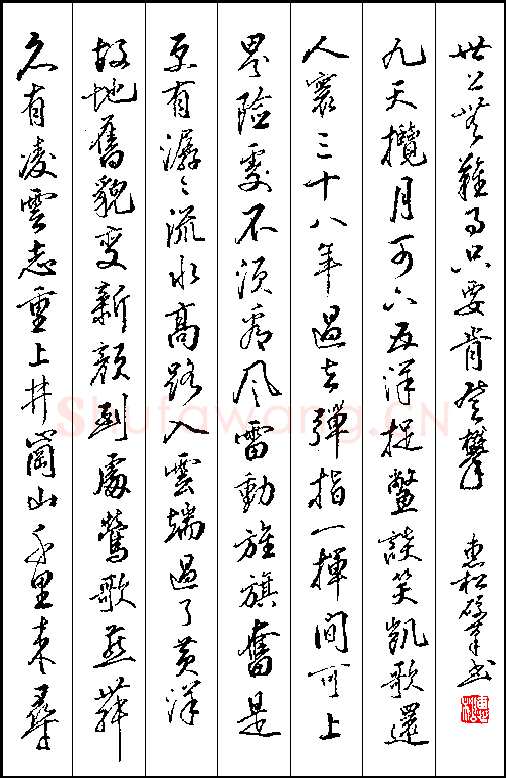 久有凌雲志重上井崗山千里来尋
故地舊貌变新顔到處鶯歌燕舞
更有潺〻流水高路入雲端過了黄洋
界險處不須看风雷動旌旗奮是
人寰三十八年過去彈指一揮间可上
九天攬月可下五洋捉鳖談笑凱歌還
世上無難事只要肯登攀
惠松硬筆书
Shufawang.CN